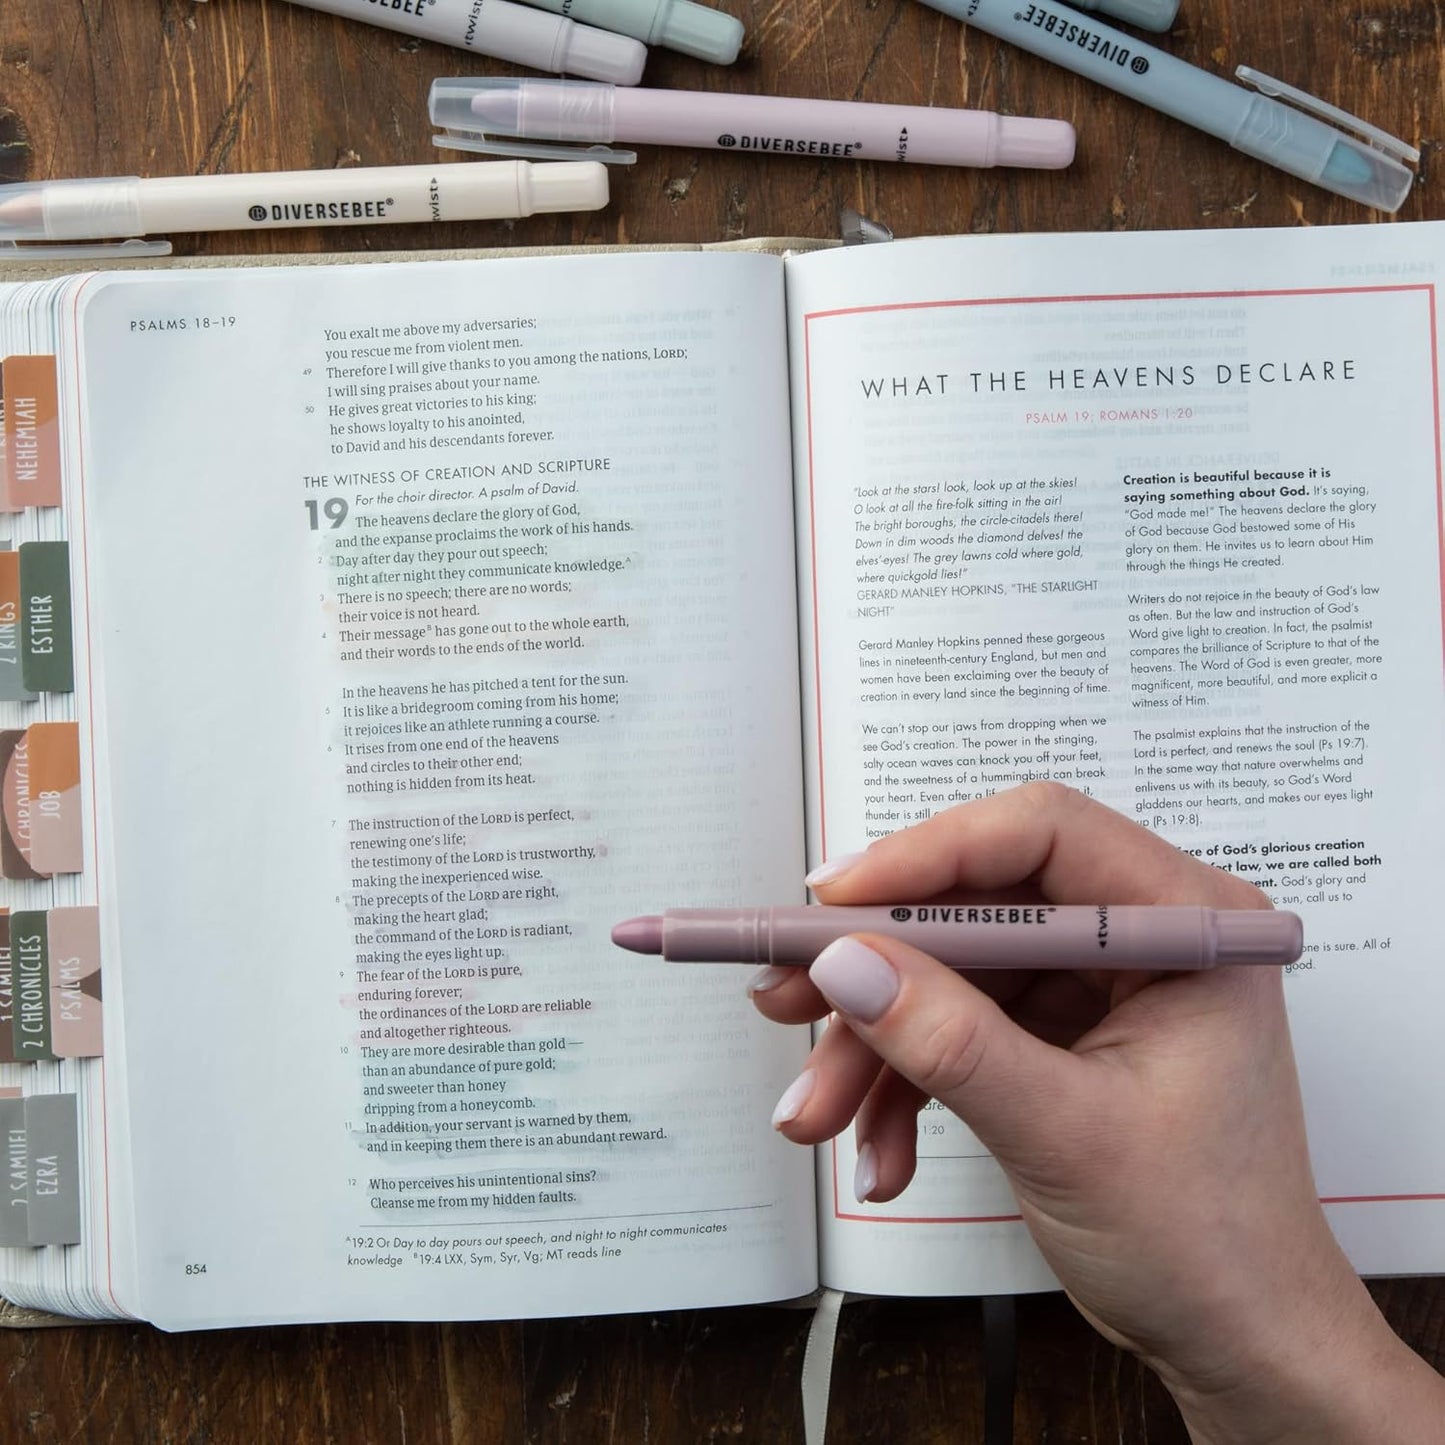 DIVERSEBEE
twist
DIVERSEBEE
DIVERSEBEE®
twist
DIVERSEBEE®
twist
PSALMS 18–19
You exalt me above my adversaries;
you rescue me from violent men.
49 Therefore I will give thanks to you among the nations, LORD;
I will sing praises about your name.
50 He gives great victories to his king;
he shows loyalty to his anointed,
to David and his descendants forever.
THE WITNESS OF CREATION AND SCRIPTURE
19 For the choir director. A psalm of David.
The heavens declare the glory of God,
and the expanse proclaims the work of his hands.
2 Day after day they pour out speech;
night after night they communicate knowledge.A
3 There is no speech; there are no words;
their voice is not heard.
4 Their messageB has gone out to the whole earth,
and their words to the ends of the world.
In the heavens he has pitched a tent for the sun.
5 It is like a bridegroom coming from his home;
it rejoices like an athlete running a course.
6 It rises from one end of the heavens
and circles to their other end;
nothing is hidden from its heat.
7 The instruction of the LORD is perfect,
renewing one's life;
the testimony of the LORD is trustworthy,
making the inexperienced wise.
8 The precepts of the LORD are right,
making the heart glad;
the command of the LORD is radiant,
making the eyes light up.
9 The fear of the LORD is pure,
enduring forever;
the ordinances of the LORD are reliable
and altogether righteous.
10 They are more desirable than gold —
than an abundance of pure gold;
and sweeter than honey
dripping from a honeycomb.
11 In addition, your servant is warned by them,
and in keeping them there is an abundant reward.
12 Who perceives his unintentional sins?
Cleanse me from my hidden faults.
A19:2 Or Day to day pours out speech, and night to night communicates
knowledge B19:4 LXX, Sym, Syr, Vg; MT reads line
854
NEHEMIAH
2 KINGS
ESTHER
1 CHRONICLES
JOB
1 SAMUEL
2 CHRONICLES
PSALMS
2 SAMUEL
EZRA
WHAT THE HEAVENS DECLARE
PSALM 19; ROMANS 1:20
"Look at the stars! look, look up at the skies!
O look at all the fire-folk sitting in the air!
The bright boroughs, the circle-citadels there!
Down in dim woods the diamond delves! the
elves'-eyes! The grey lawns cold where gold,
where quickgold lies!"
GERARD MANLEY HOPKINS, "THE STARLIGHT
NIGHT"
Gerard Manley Hopkins penned these gorgeous
lines in nineteenth-century England, but men and
women have been exclaiming over the beauty of
creation in every land since the beginning of time.
We can't stop our jaws from dropping when we
see God's creation. The power in the stinging,
salty ocean waves can knock you off your feet,
and the sweetness of a hummingbird can break
your heart. Even after a it,
thunder is still
Creation is beautiful because it is
saying something about God. It's saying,
"God made me!" The heavens declare the glory
of God because God bestowed some of His
glory on them. He invites us to learn about Him
through the things He created.
Writers do not rejoice in the beauty of God's law
as often. But the law and instruction of God's
Word give light to creation. In fact, the psalmist
compares the brilliance of Scripture to that of the
heavens. The Word of God is even greater, more
magnificent, more beautiful, and more explicit a
witness of Him.
The psalmist explains that the instruction of the
Lord is perfect, and renews the soul (Ps 19:7).
In the same way that nature overwhelms and
enlivens us with its beauty, so God's Word
gladdens our hearts, and makes our eyes light
up (Ps 19:8).
of God's glorious creation
law, we are called both
God's glory and
sun, call us to
one is sure. All of
good.
1:20
DIVERSEBEE®
twist